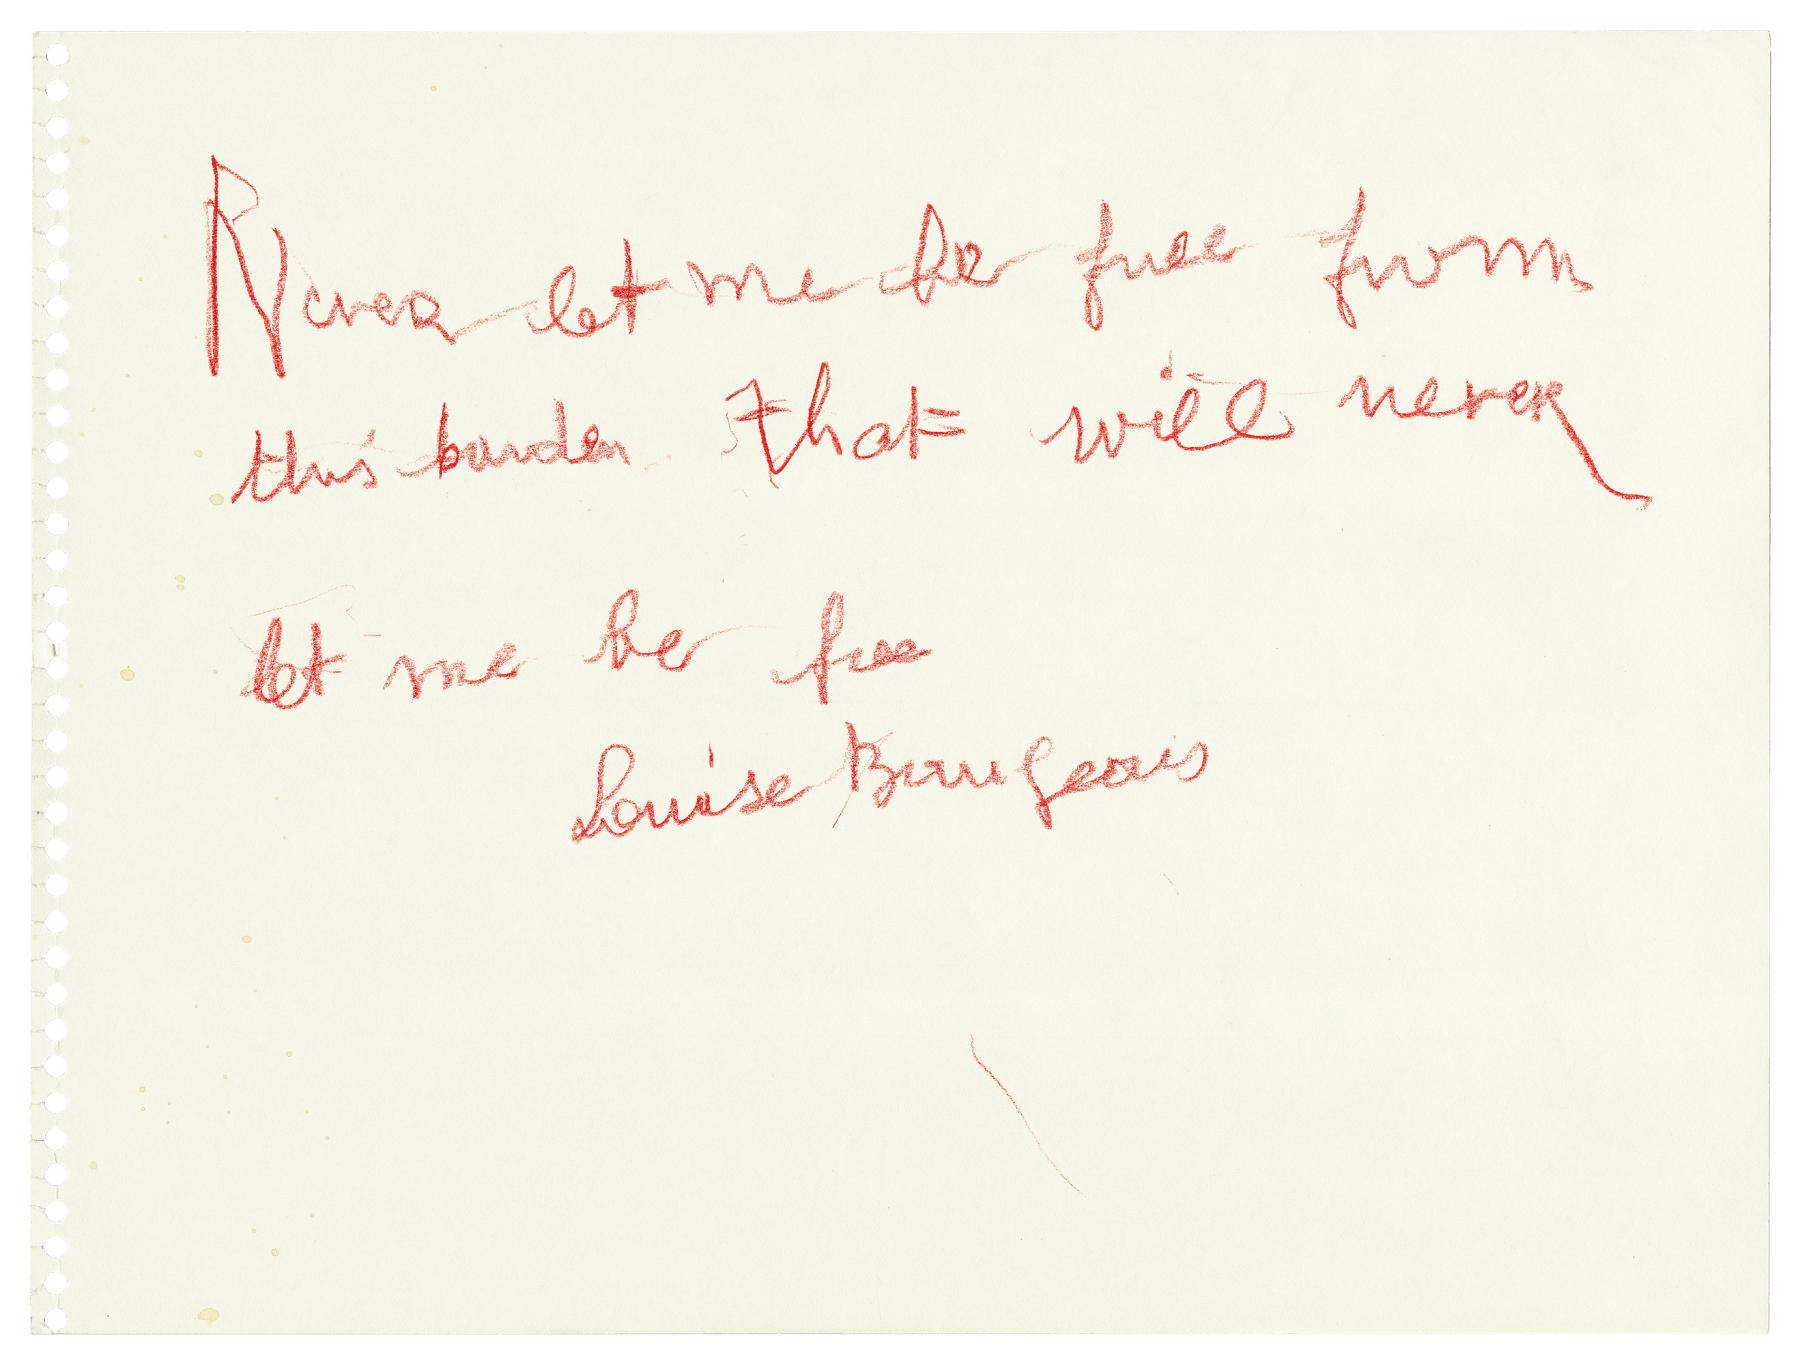 Never let me be free from
this burden that will never
let me be free
Louise Bourgeois